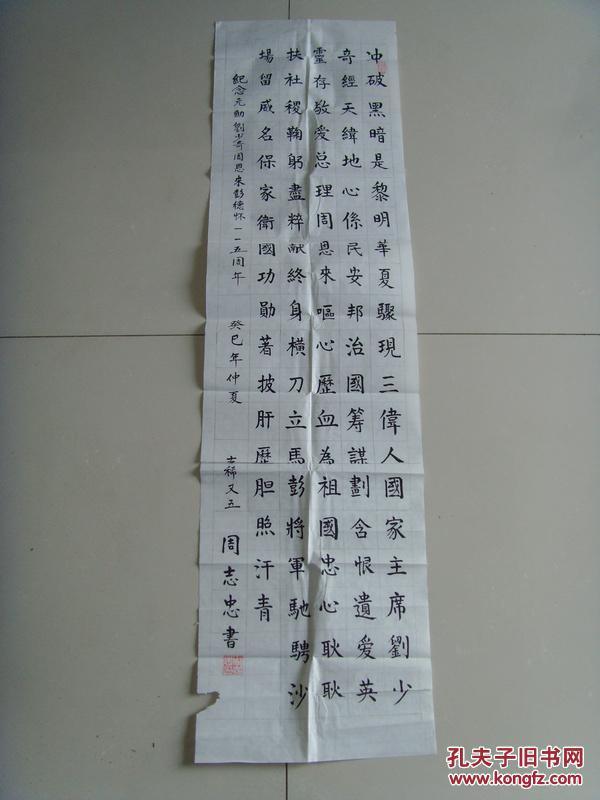 冲破黑暗是黎明華夏驟現三偉人國家主席劉少
奇經天緯地心係民安邦治國筹謀劃含恨遺爱英
靈存敬爱总理周恩來嘔心歷血為祖國忠心耿耿
扶社稷鞠躬盡粹献終身橫刀立馬彭將軍馳騁沙
場留威名保家衛國功勋著披肝歷胆照汗青
紀念元勛劉少奇周恩來彭德怀一一五周年 癸巳年仲夏 古稀又五 周志忠書
孔夫子旧书网
www.kongfz.com